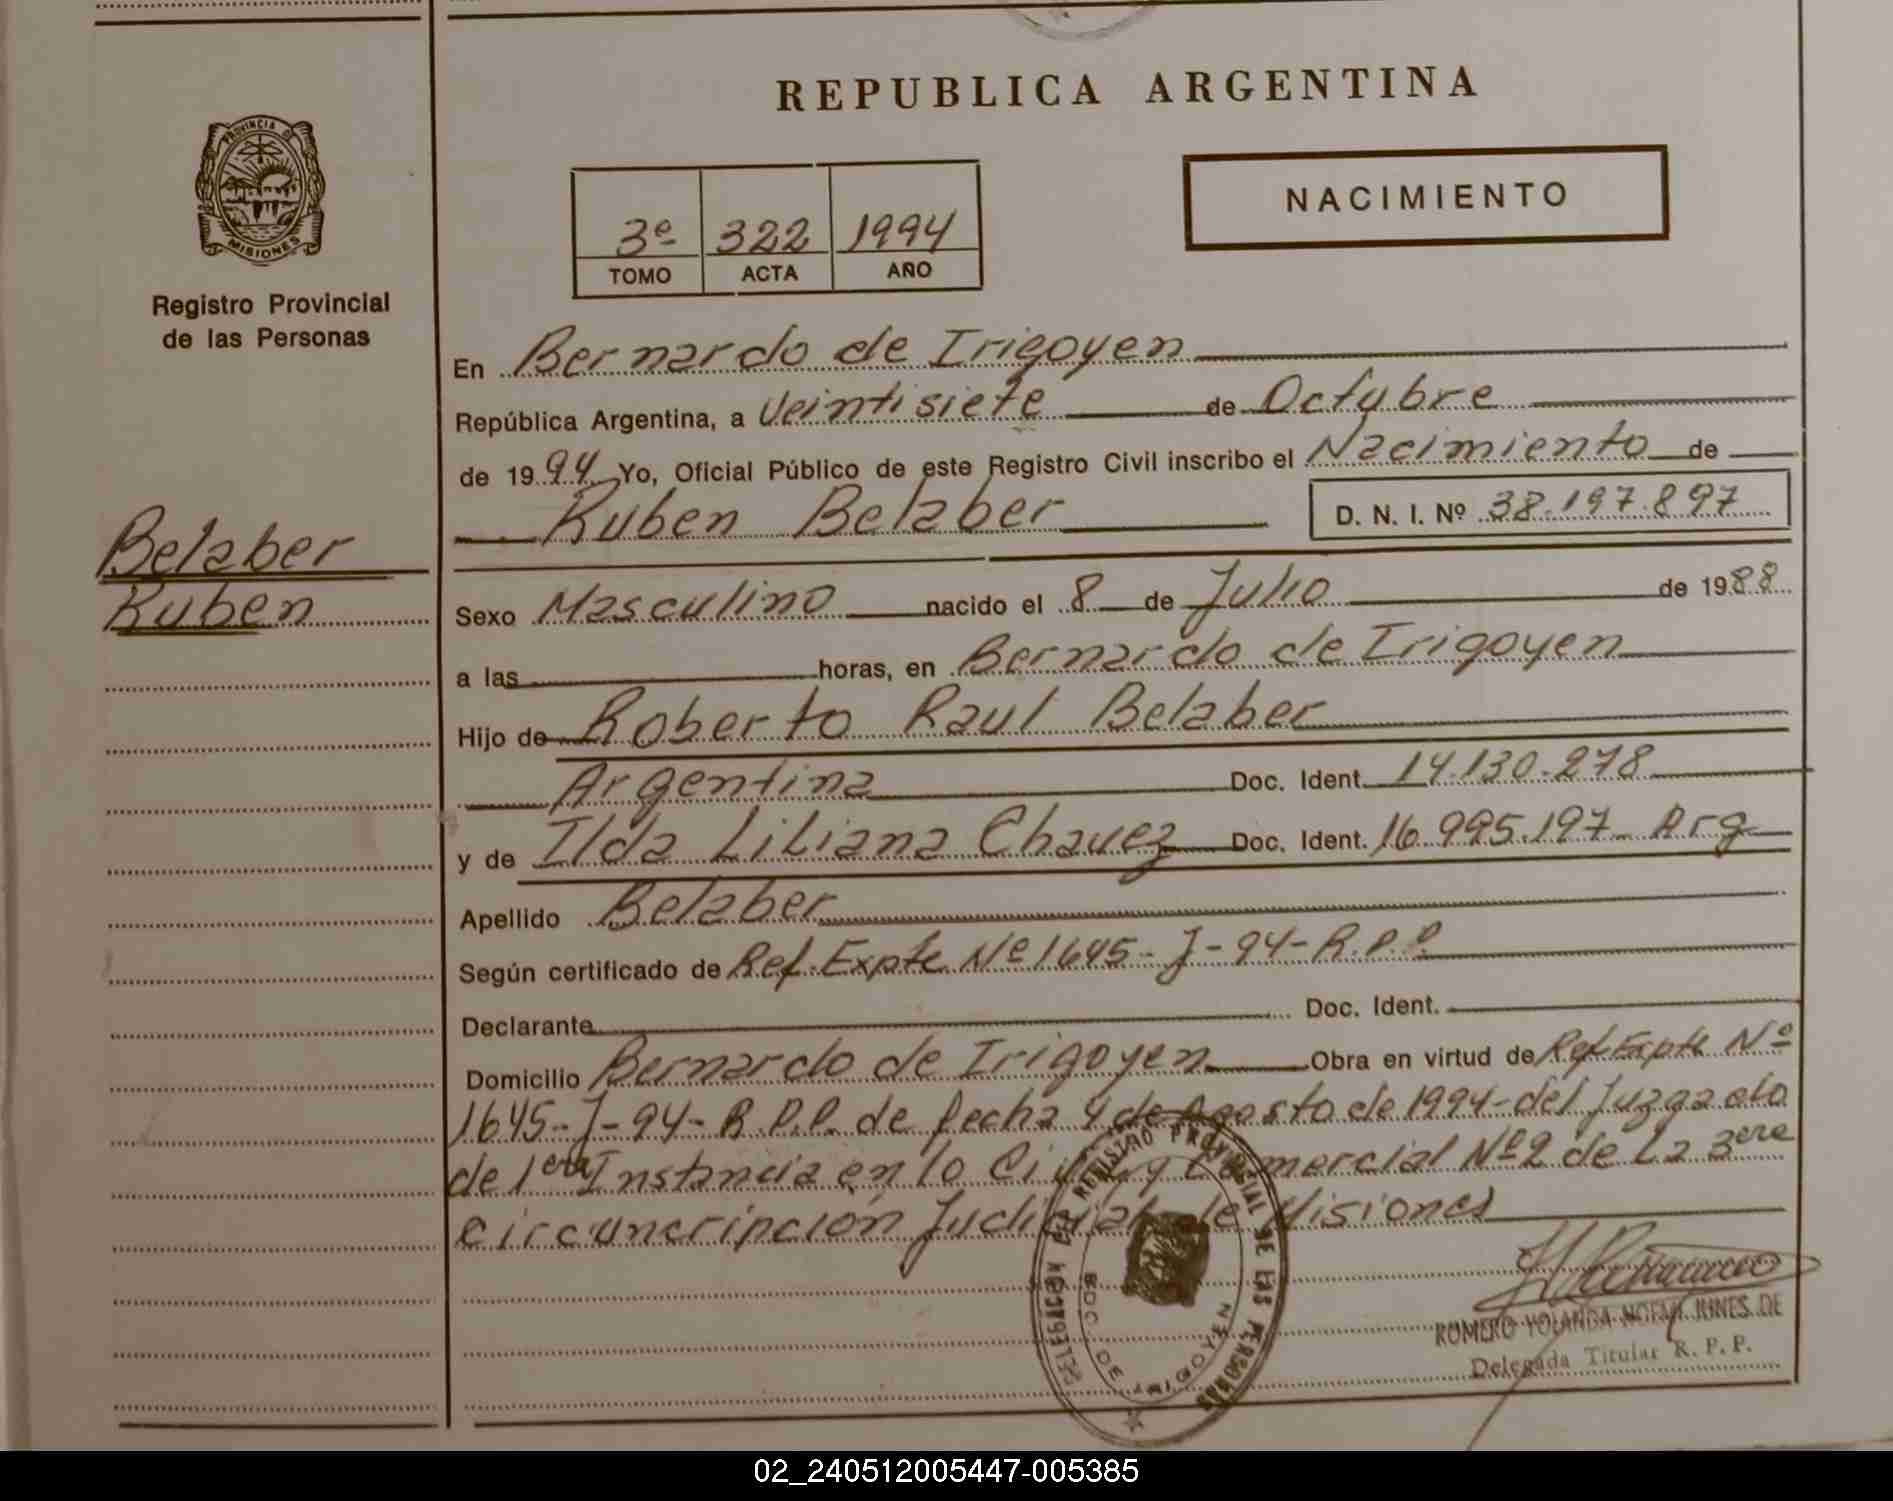 REPUBLICA ARGENTINA
PROVINCIA DE
MISIONES
Registro Provincial
de las Personas
3º 322 1994
TOMO ACTA AÑO
NACIMIENTO
En Bernardo de Irigoyen
República Argentina, a Veintisiete de Octubre
de 1994 Yo, Oficial Público de este Registro Civil inscribo el Nacimiento de
Ruben Belaber D. N. I. Nº 38.197.897
Belaber
Ruben
Sexo Masculino nacido el 8 de Julio de 1988
a las horas, en Bernardo de Irigoyen
Hijo de Roberto Raul Belaber
Argentina Doc. Ident. 14.130.278
y de Ilda Liliana Chavez Doc. Ident. 16.995.197 Arg
Apellido Belaber
Según certificado de Ref. Expte Nº 1645-J-94-R.P.P.
Declarante Doc. Ident.
Domicilio Bernardo de Irigoyen Obra en virtud de Ref Expte Nº
1645-J-94-R.P.P. de fecha 4 de Agosto de 1994-del Juzgado
de 1era Instancia en lo Civil y Comercial Nº 2 de La 3era
circuncripción Judicial de Misiones
DELEGACION DEL REGISTRO PROVINCIAL DE LAS PERSONAS
BDO. DE IRIGOYEN
ROMERO YOLANDA NOEMI JUNES DE
Delegada Titular R. P. P.
02_240512005447-005385